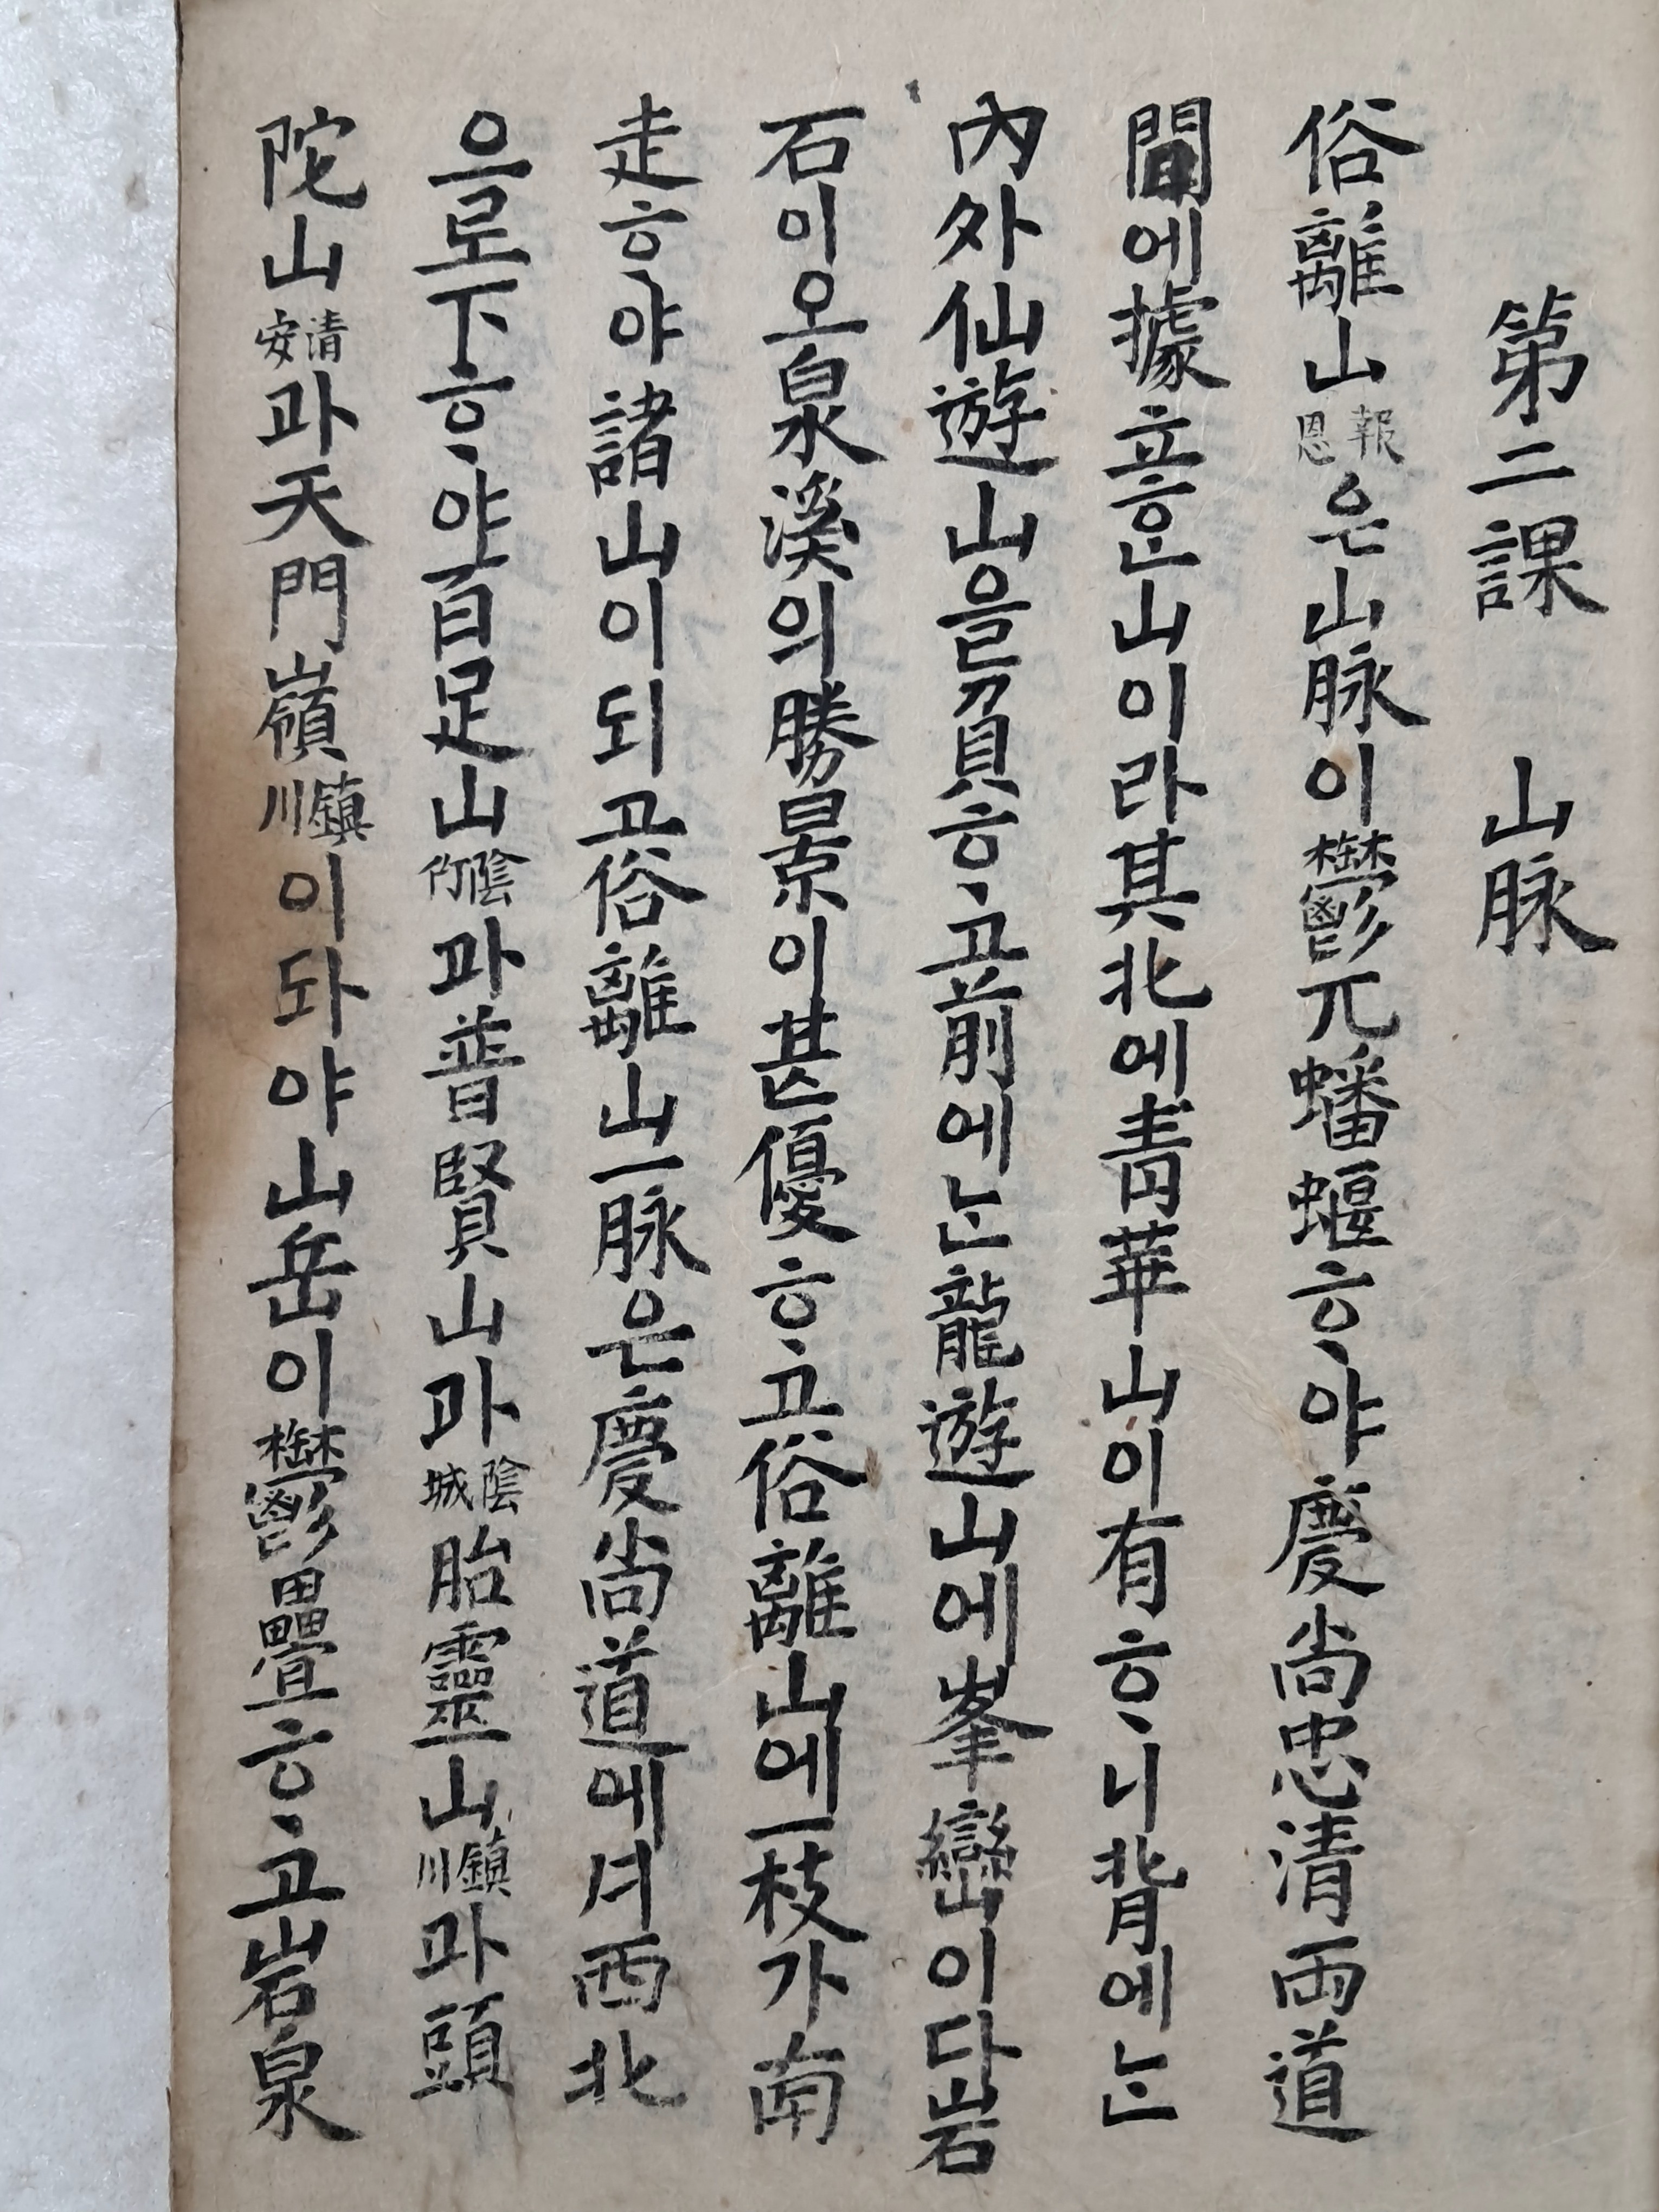 第二課 山脉
俗離山報恩은山脉이鬱兀蟠蜿ᄒᆞ야慶尙忠淸兩道
間에據立ᄒᆞᆫ山이라其北에靑華山이有ᄒᆞ니背에ᄂᆞᆫ
內外仙遊山을負ᄒᆞ고前에ᄂᆞᆫ龍遊山에峯巒이다岩
石이오泉溪의勝景이甚優ᄒᆞ고俗離山에一枝가南
走ᄒᆞ야諸山이되고俗離山一脉은慶尙道에셔西北
으로下ᄒᆞ야百足山陰竹과普賢山과陰城胎靈山鎭川과頭
陀山淸安과天門嶺鎭川이되야山岳이鬱疊ᄒᆞ고岩泉